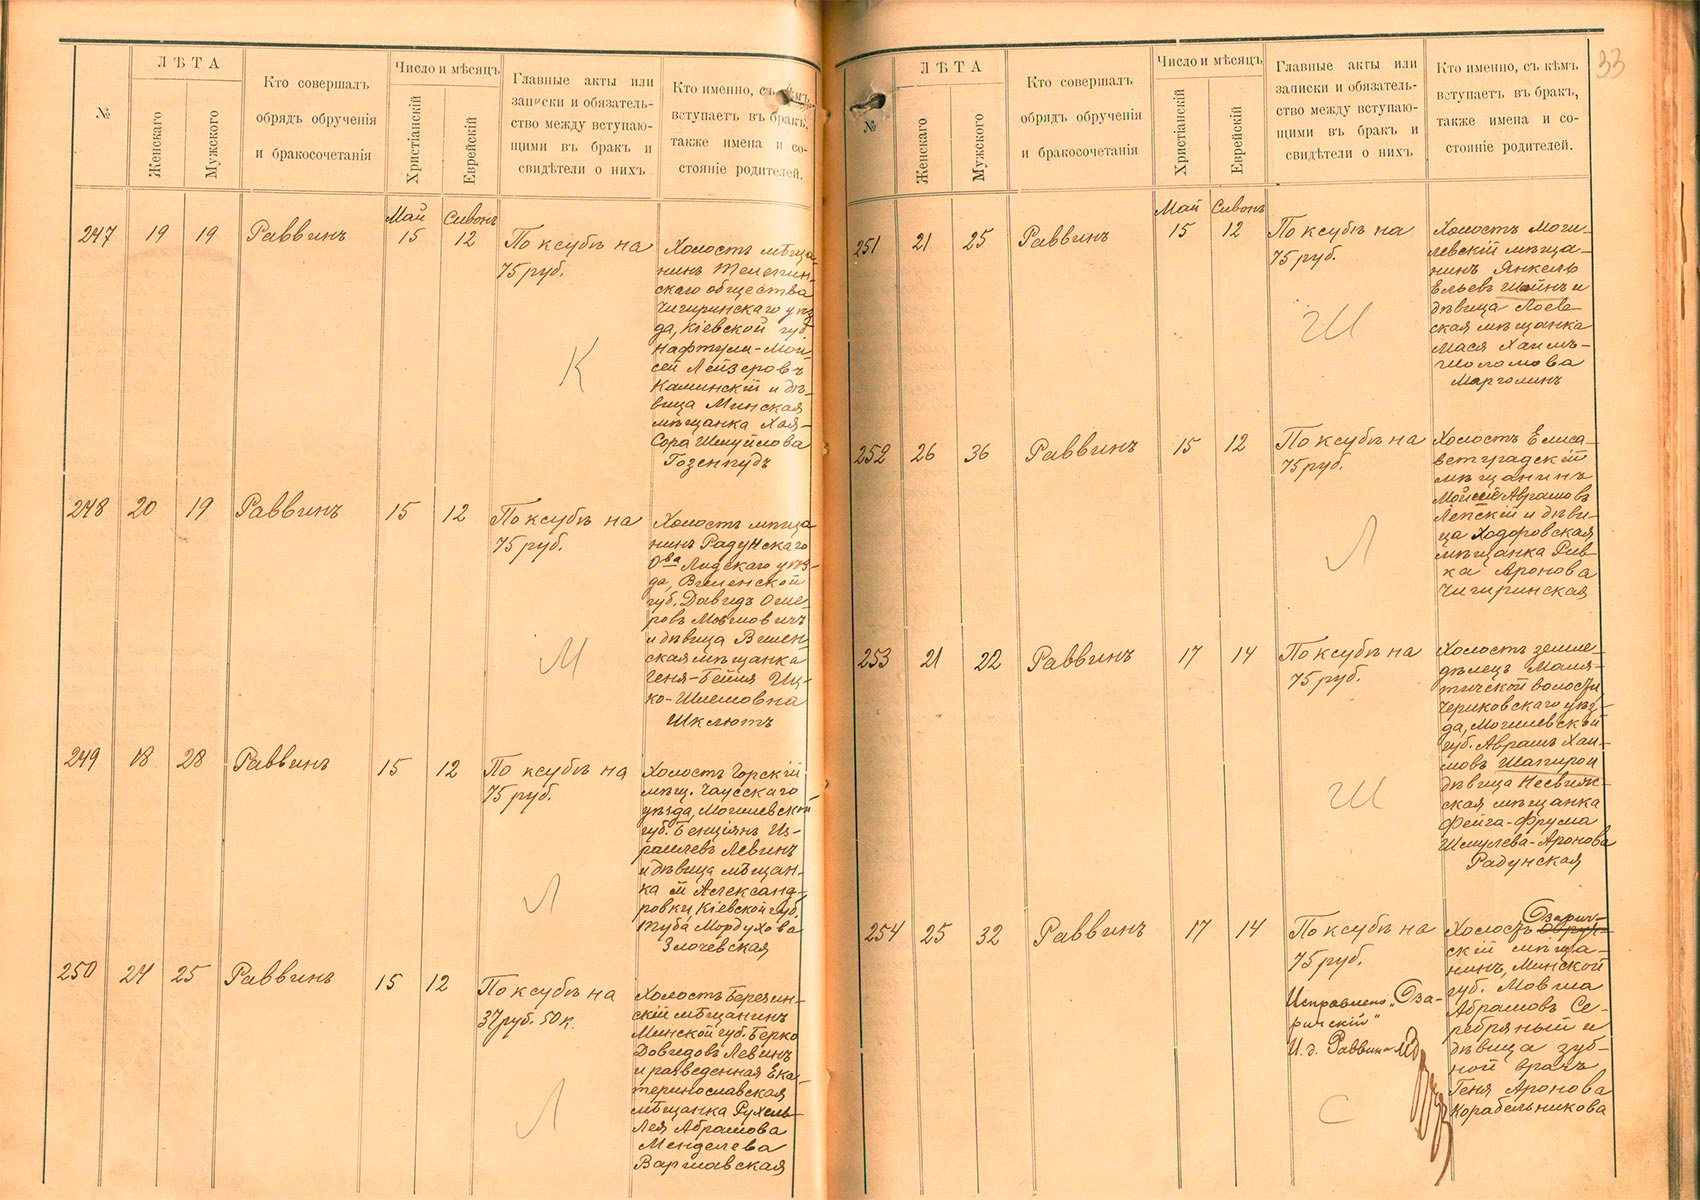 №
ЛѢТА
Женскаго
Мужского
Кто совершалъ
обрядъ обрученія
и бракосочетанія
Число и мѣсяцъ
Христіанскій
Еврейскій
Главные акты или
записки и обязатель-
ство между вступаю-
щими въ бракъ и
свидѣтели о нихъ
Кто именно, съ кѣмъ
вступаетъ въ бракъ,
также имена и со-
стояніе родителей.
Май Сивонъ
247 19 19 Раввинъ 15 12
По ксубѣ на
75 руб.
К
Холостъ мѣща-
нинъ Телепин-
скаго общества
Чигиринскаго уѣз-
да, Кіевской губ.
Нафтули-Мои-
сей Лейзеровъ
Каминскій и дѣ-
вица Минская
мѣщанка Хая-
Сора Шмуйлова
Гозенпудъ
248 20 19 Раввинъ 15 12
По ксубѣ на
75 руб.
М
Холостъ мѣща
нинъ Радунскаго
О-ва Лидскаго уѣз-
да, Виленской
губ. Давидъ Оше-
ровъ Мовшовичъ
и дѣвица Вилен-
ская мѣщанка
Геня-Бейля Иц-
ко-Шлемовна
Шклютъ
249 18 28 Раввинъ 15 12
По ксубѣ на
75 руб.
Л
Холостъ Горскій
мѣщ. Чаусскаго
уѣзда, Могилевской
губ. Бенціянъ Из-
раилевъ Левинъ
и дѣвица мѣщан-
ка м Александ-
ровки, Кіевской губ.
Туба Мордухова
Злочевская
250 24 25 Раввинъ 15 12
По ксубѣ на
37 руб. 50 к.
Л
Холостъ Березин-
скій мѣщанинъ
Минской губ. Берко
Довидовъ Левинъ
и разведенная Ека-
теринославская
мѣщанка Рухель-
Лея Абрамова
Менделева
Варшавская
33
№
ЛѢТА
Женскаго
Мужского
Кто совершалъ
обрядъ обрученія
и бракосочетанія
Число и мѣсяцъ
Христіанскій
Еврейскій
Главные акты или
записки и обязатель-
ство между вступаю-
щими въ бракъ и
свидѣтели о нихъ
Кто именно, съ кѣмъ
вступаетъ въ бракъ,
также имена и со-
стояніе родителей.
Май Сивонъ
251 21 25 Раввинъ 15 12
По ксубѣ на
75 руб.
Ш
Холостъ Моги-
левскій мѣща-
нинъ Янкель
Ельевъ Шейнъ и
дѣвица Лоев-
ская мѣщанка
Мася Хаимъ-
Шоломова
Марголинъ
252 26 36 Раввинъ 15 12
По ксубѣ на
75 руб.
Л
Холостъ Елиса-
ветградскій
мѣщанинъ
Мойсей Аврамовъ
Лепскій и дѣви-
ца Ходоровская
мѣщанка Рив-
ка Аронова
Чигиринская
253 21 22 Раввинъ 17 14
По ксубѣ на
75 руб.
Ш
Холостъ земле-
дѣлецъ Маля-
тичской волости
Чериковскаго уѣз-
да, Могилевской
губ. Аврамъ Хаи-
мовъ Шапиро и
дѣвица Несвиж-
ская мѣщанка
Фейга-Фрума
Шмулева-Аронова
Радунская
254 25 32 Раввинъ 17 14
По ксубѣ на
75 руб.
Исправлено "Оза-
ричскій"
И. д. Раввина
С
Озарич-
Холостъ
скій мѣща-
нинъ, Минской
губ. Мовша
Абрамовъ Се-
ребряный и
дѣвица зуб-
ной врачъ
Геня Аронова
Корабельникова